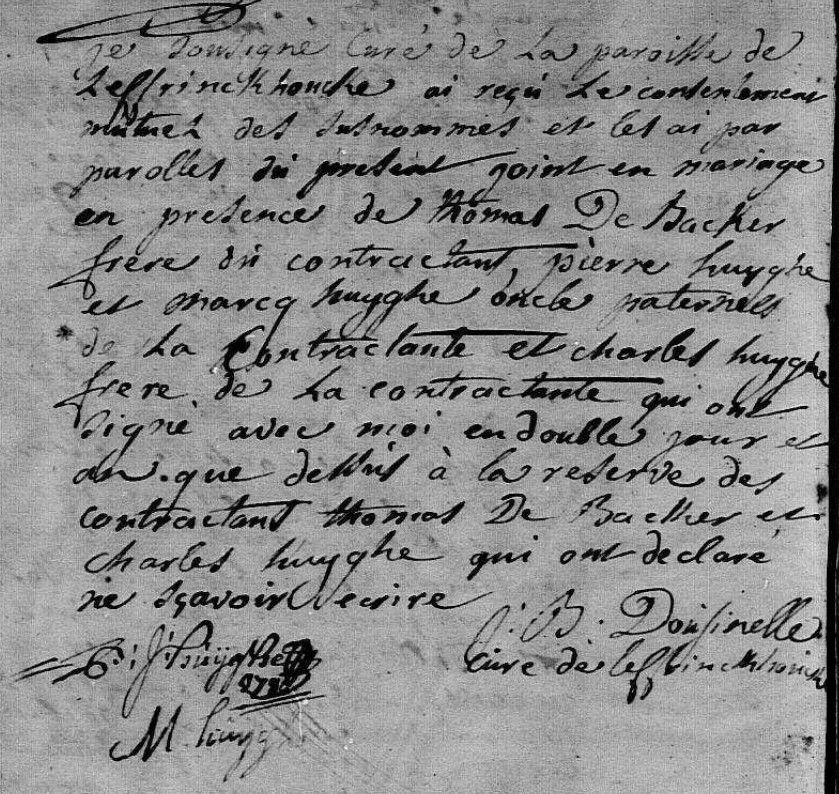 je sousigné Curé de La paroisse de
Leffrinckhoucke ai reçu Le consentement
mutuel des susnommés et les ai par
parolles du present joint en mariage
en presence de thomas De Backer
frere du contractant, pierre huyghe
et marcq huyghe oncle paternels
de La Contractante et charles huyghe
frere de La contractante qui ont
signé avec moi en double jour et
an que dessus à la reserve des
contractant thomas De Backer et
charles huyghe qui ont declaré
ne sçavoir ecrire
J: B: Dousinelle
P: J: huyghe Curé de leffrinckhouck
M huyg